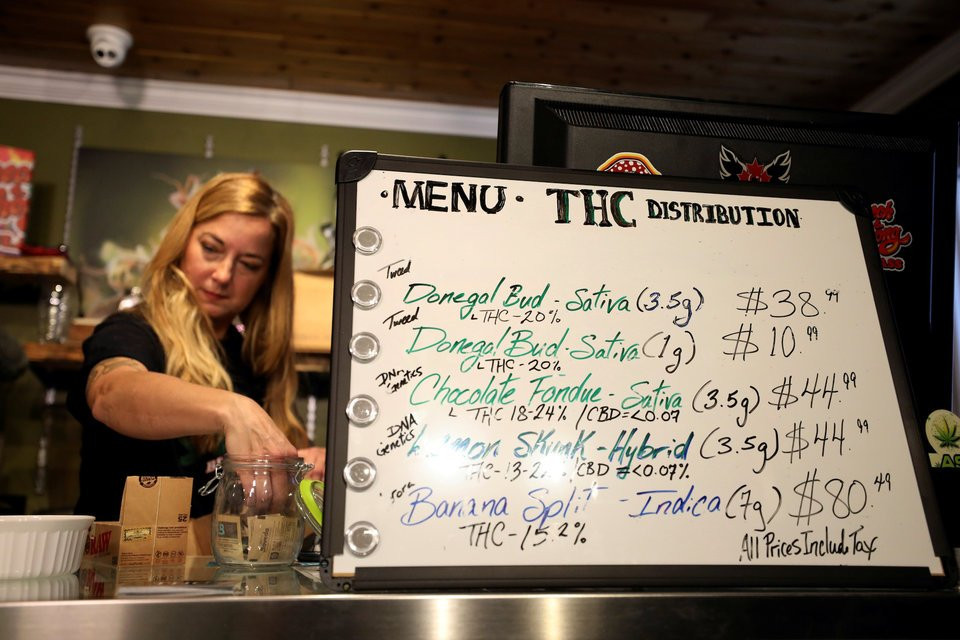 • MENU • THC DISTRIBUTION
Tweed
Donegal Bud - Sativa (3.5g) $38.99
THC-20%
Tweed
Donegal Bud - Sativa (1g) $10.99
THC-20%
DNA Genetics
Chocolate Fondue - Sativa (3.5g) $44.99
THC 18-24% / CBD=<0.07
DNA
Genetics
Lemon Skunk - Hybrid (3.5g) $44.99
/CBD <0.07%
Banana Split - Indica (7g) $80.49
THC-15.2%
All Prices Include Tax
RAW